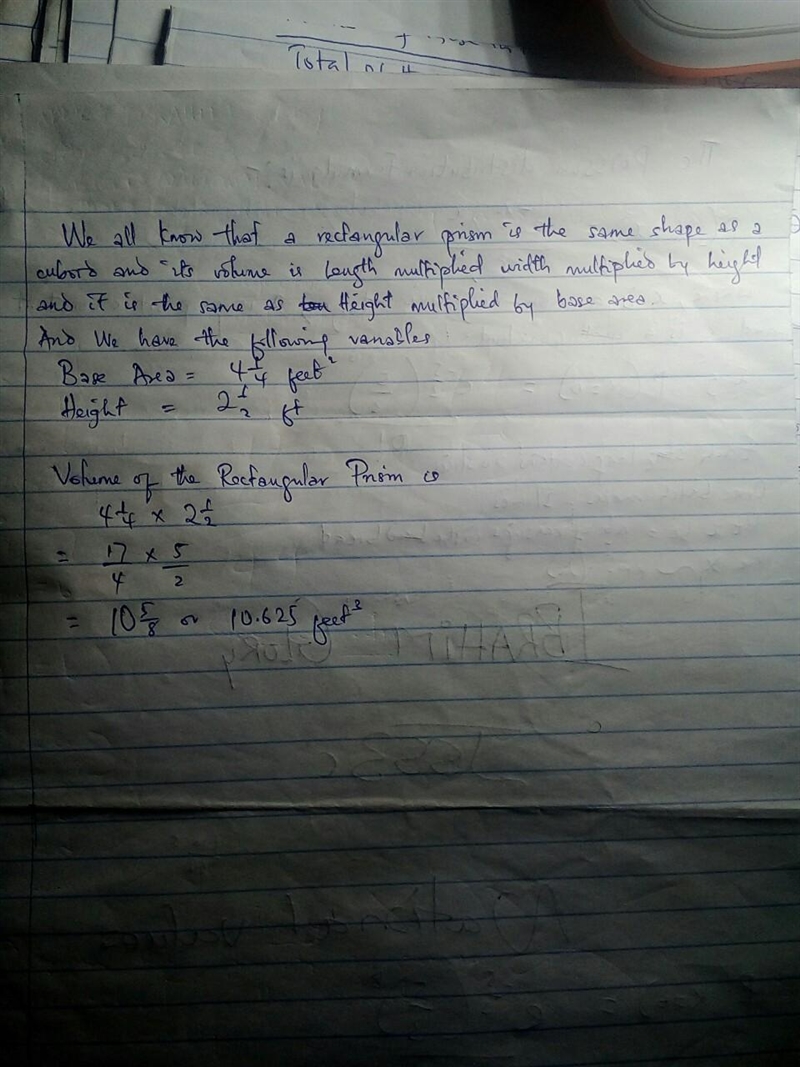 Total
We all know that a rectangular prism is the same shape as a
cuboid and its volume is length multiplied width multiplied by height
and it is the same as Height multiplied by base area.
And We have the following variables
Base Area = 4 1/4 feet²
Height = 2 1/2 ft
Volume of the Rectangular Prism is
4 1/4 × 2 1/2
= 17/4 × 5/2
= 10 5/8 or 10.625 feet³